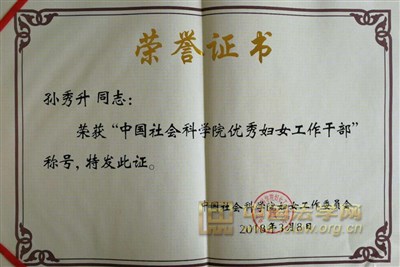 荣誉证书
孙秀升 同志:
荣获“中国社会科学院优秀妇女工作干部”
称号,特发此证。
中国社会科学院妇女工作委员会
2018年3月8日
中国法学网
www.iolaw.org.cn